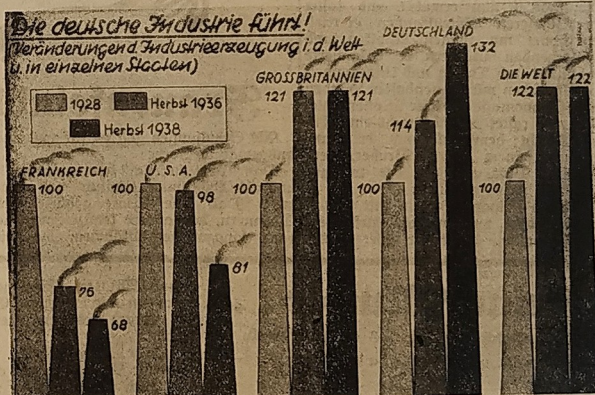 Die deutsche Industrie führt!
(Veränderungen d. Industrieerzeugung i. d. Welt
u. in einzelnen Staaten)
1928 Herbst 1936
Herbst 1938
FRANKREICH
100
76
68
U.S.A.
100
98
81
GROSSBRITANNIEN
100
121
121
DEUTSCHLAND
100
114
132
DIE WELT
100
122
122